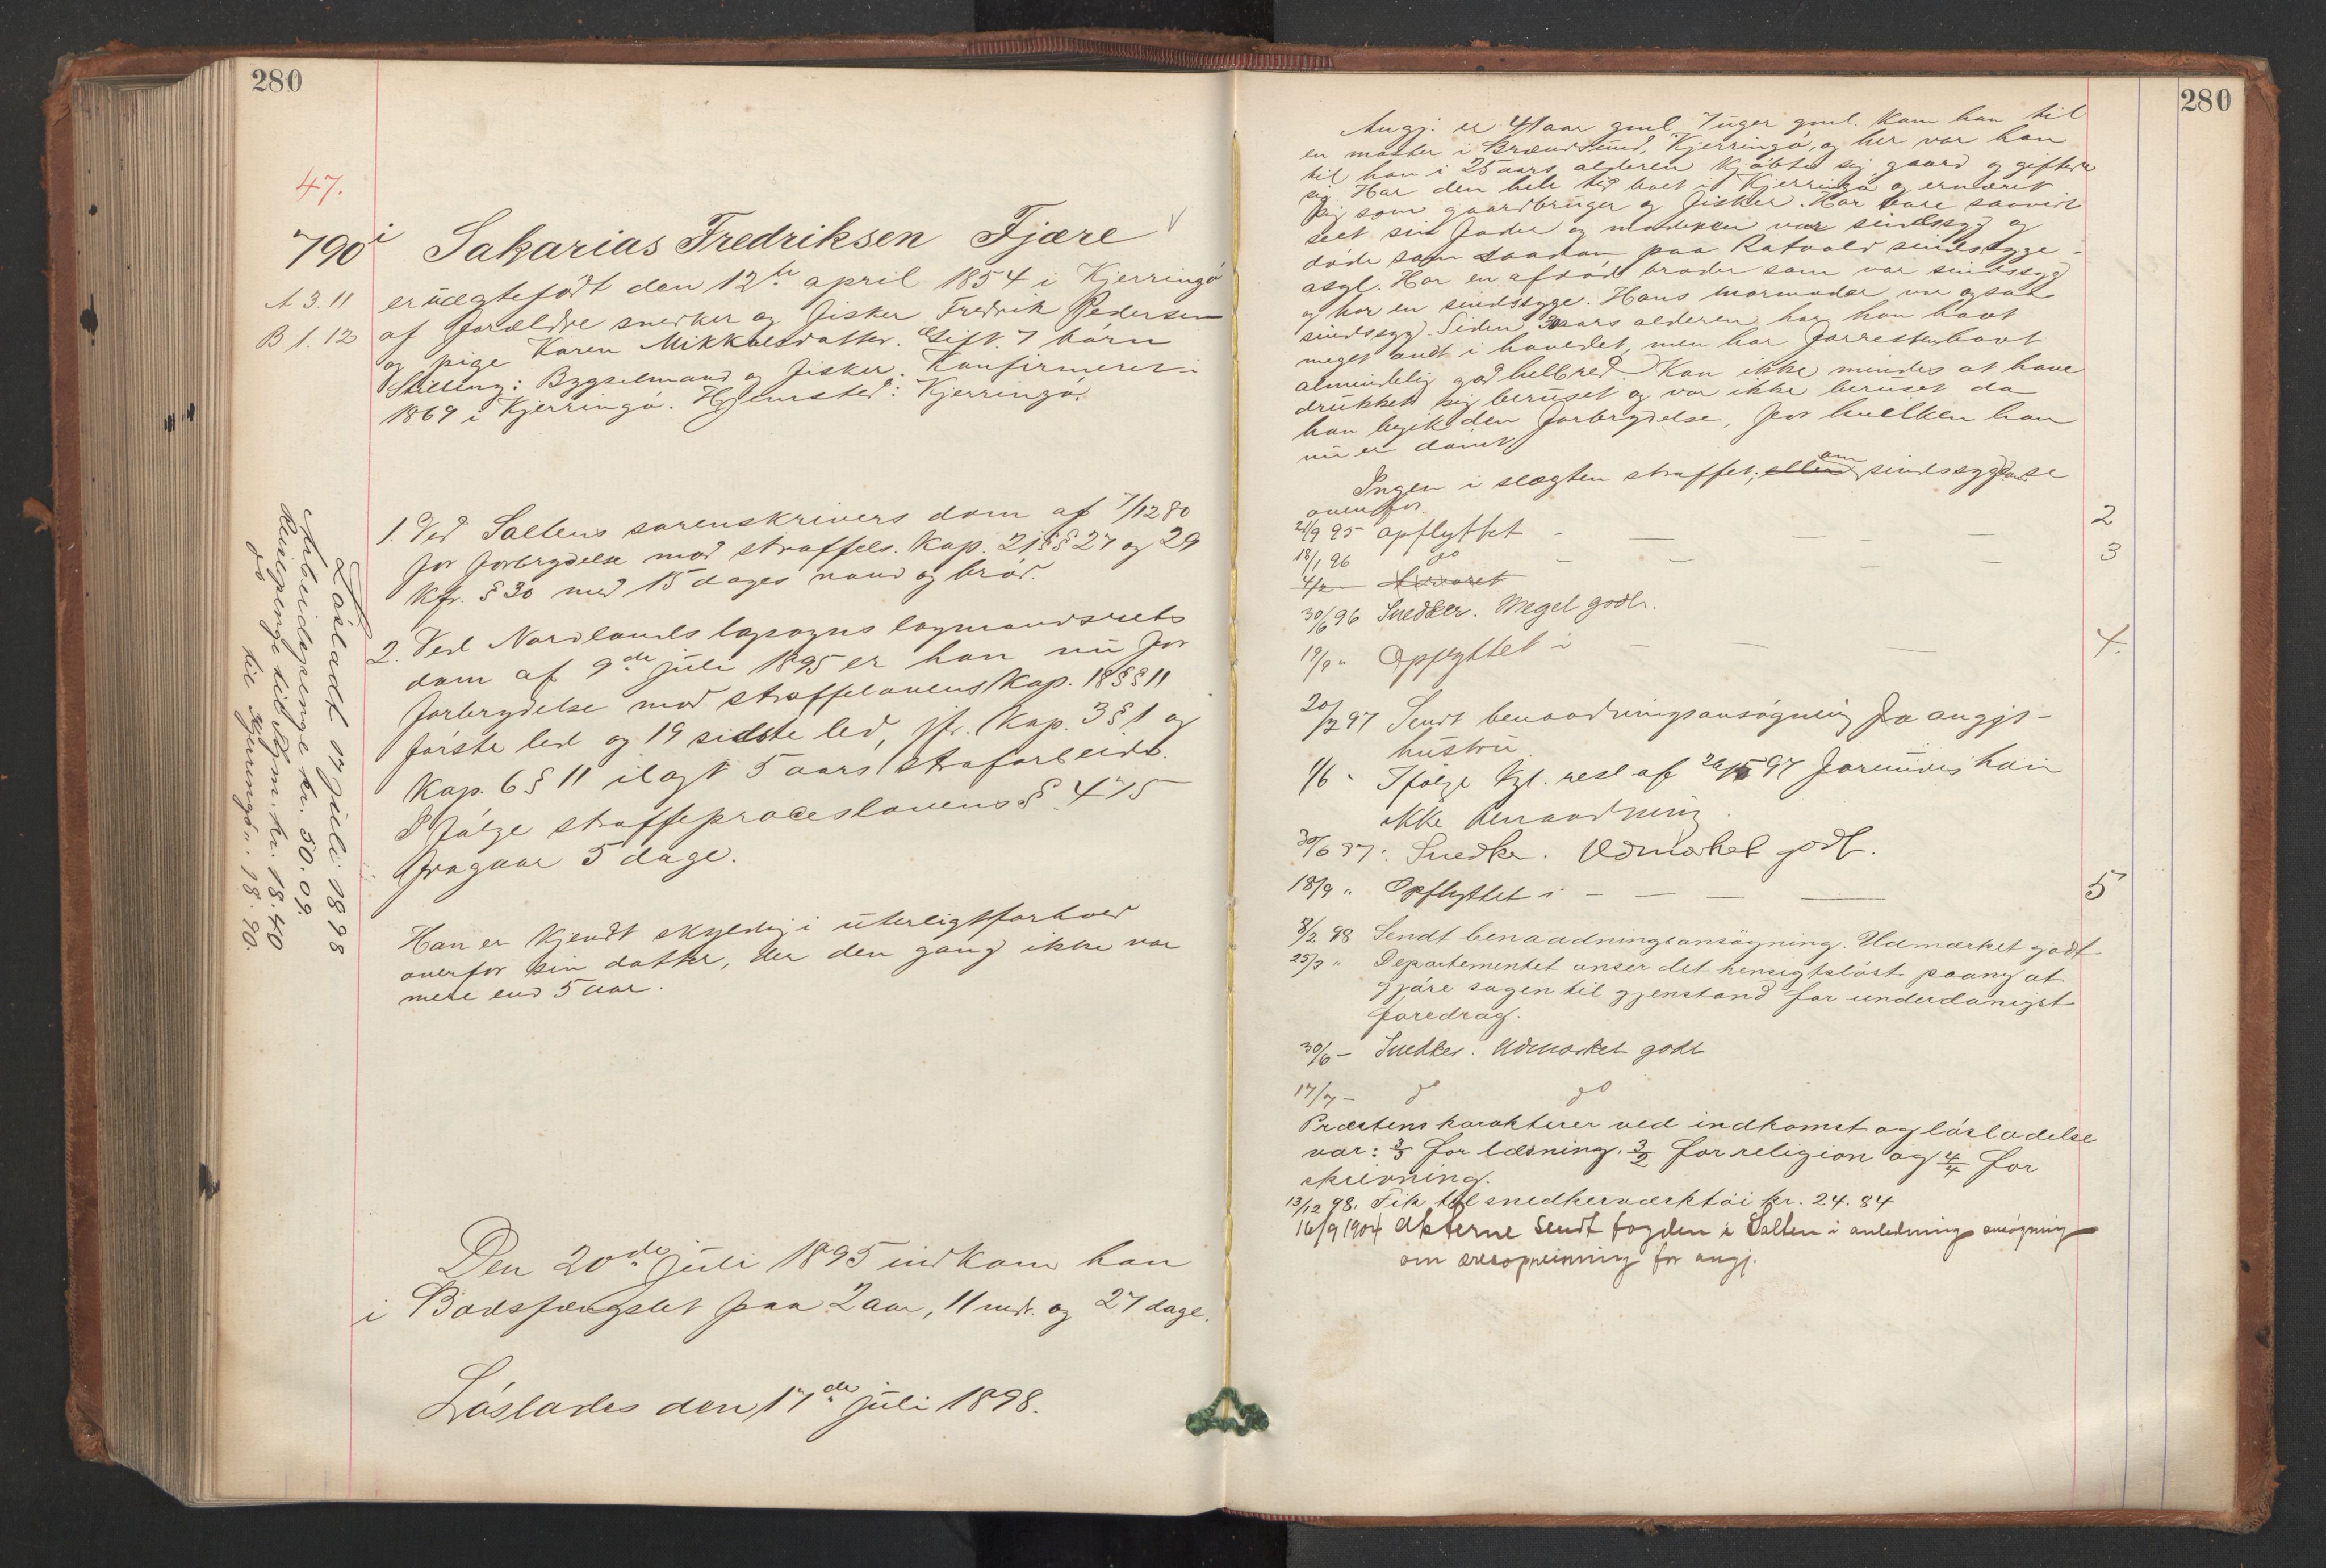 280
47.
790 i Sakarias Fredriksen Fjære
A 3. 11
B 1. 12
er uægtefødt den 12te april 1854 i Kjerringø
af forældre snedker og fisker Fredrik Pedersen
og pige Karen Mikkelsdatter. Gift. 7 børn
Stilling: Bygselmand og fisker. Konfirmeret i
1869 i Kjerringø. Hjemsted: Kjerringø.
1. Ved Saltens sorenskrivers dom af 7/12 80
for forbrydelse mod straffels. Kap. 21 §§ 27 og 29
kfr. § 30 med 15 dages vand og brød.
2. Ved Nordlands lagsogns lagmandsrets
dom af 9de juli 1895 er han nu for
forbrydelse mod straffelovens Kap. 18 §§ 11
første led og 19 sidste led, jfr. Kap. 3 § 1 og
Kap. 6 § 11 ilagt 5 aars strafarbeide.
I følge straffeproceslovens § 475
fragaar 5 dage.
Han er kjendt skyldig i uterligt forhold
overfor sin datter, der den gang ikke var
mere end 5 aar.
Den 20de juli 1895 indkom han
i Bodsfængslet paa 2 aar, 11 mdr. og 27 dage.
Løslades den 17de juli 1898.
Løsladt 17 juli 1898
Arbeidspenge kr. 50.09
Reisepenge til hjm. kr. 18.40
do til Kjerringø " 18.90.
280
Angj. er 41 aar gml. 7 uger gml. kom han til
en moster i Brændsund, Kjerringø, og her var han
til han i 25 aars alderen kjøbte sig gaard og giftede
sig. Har den hele tid boet i Kjerringø og ernæret
sig som gaardbruger og fisker. Har bare saavidt
seet sin fader og moderen var sindssyg og
døde som saadan paa Rotvold sindssyge-
asyl. Har en afdød broder som var sindssyg
og har en sindssyge. Hans mormoder var ogsaa
sindssyg. Siden 30 aars alderen har han havt
meget ondt i hovedet, men har forresten havt
almindelig god helbred. Kan ikke mindes at have
drukket sig beruset og var ikke beruset da
han begik den forbrydelse, for hvilken han
nu er dømt.
Ingen i slægten straffet; eller om sindssygdom se
ovenfor.
21/9 95 opflyttet - — — — — 2
18/1 96 do — — — — 3
4/2
30/6 96 Snedker. Meget godt.
19/9 " Opflyttet i — — — 4.
20/2 97 Sendt benaadningsansøgning fra angjs
hustru
1/6 " Ifølge kgl. resl af 26/5 97 forundes han
ikke benaadning.
30/6 97: Snedker. Udmærket godt.
18/9 " Opflyttet i — — — — 5
8/2 98 Sendt benaadningsansøgning. Udmærket godt
25/3 " Departementet anser det hensigtsløst paany at
gjøre sagen til gjenstand for underdanigst
foredrag.
30/6 - Snedker. Udmærket godt
17/7 - do do
Præstens karakterer ved indkomst og løsladelse
var: 3/3 for læsning. 3/2 for religion og 4/4 for
skrivning.
13/12 98. Fik til snedkerværktøi kr. 24.84
16/9 1904 Akterne sendt fogden i Salten i anledning ansøgning
om æresopreisning for angj.